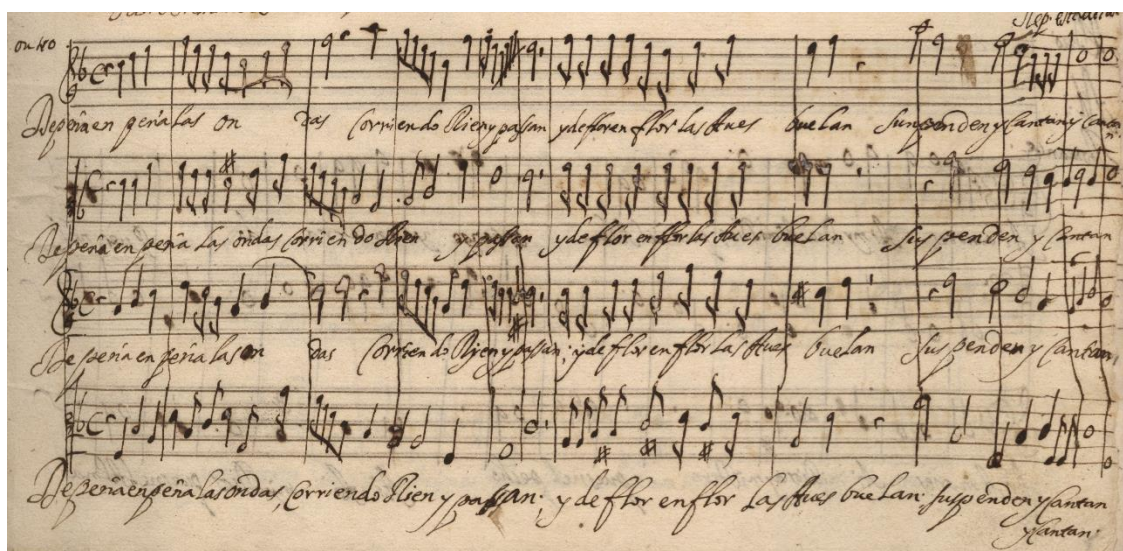 De peña en peña las on das Corriendo Rien y passan y de flor en flor las Aues buelan Suspenden y Cantan y Cantan
De peña en peña las ondas Corriendo Rien y passan y de flor en flor las Aues buelan Suspenden y Cantan
De peña en peña las on das Corriendo Rien y passan; y de flor en flor las Aues buelan Suspenden y Cantan,
De peña en peña las ondas, Corriendo Rien y passan; y de flor en flor las Aues buelan. suspenden y Cantan
y Cantan.